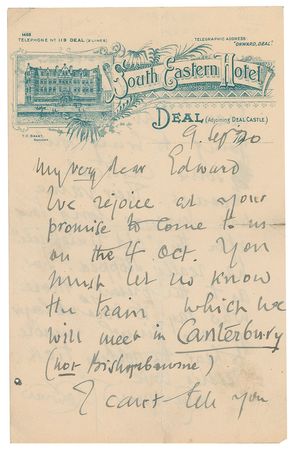 1468
TELEPHONE Nº 119 DEAL (2 LINES)
TELEGRAPHIC ADDRESS
"ONWARD, DEAL."
South Eastern Hotel
DEAL (Adjoining DEAL CASTLE.)
9. Sept 20
My very dear Edward
We rejoice at your
promise to come to us
on the 4 Oct. You
must let us know
the train which we
will meet in Canterbury
(not Bishopsbourne)
I can't tell you